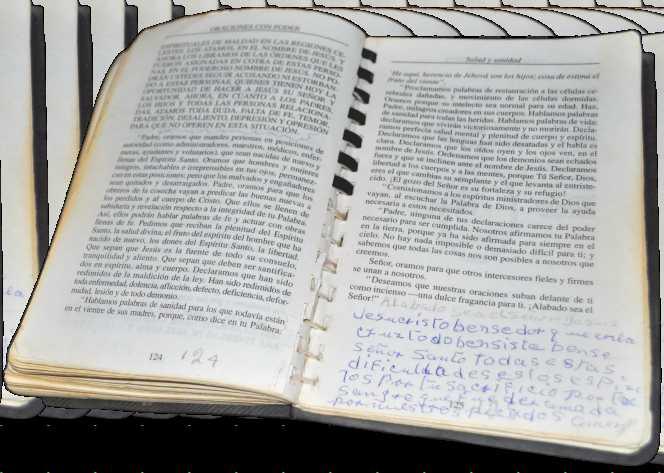 ORACIONES CON PODER
ESPIRITUALES DE MALDAD EN LAS REGIONES CE-
LESTES. LOS ATAMOS, EN EL NOMBRE DE JESUS. Y
AHORA LOS LIBRAMOS DE LAS ÓRDENES QUE LES
FUERON ASIGNADAS EN CONTRA DE ESTAS PERSO-
NAS, EN EL PODEROSO NOMBRE DE JESÚS. NO PO-
DRÁN USTEDES SEGUIR ACOSANDO NI ESTORBAN-
DO A ESTAS PERSONAS, QUIENES TIENEN HOY LA
OPORTUNIDAD DE HACER A JESÚS EL SEÑOR Y
SALVADOR. AHORA, EN CUANTO A LOS PADRES,
LOS HIJOS Y TODAS LAS PERSONAS RELACIONA-
DAS, ATAMOS TODA DUDA, FALTA DE FE, TEMOR,
TRADICIÓN, DESALIENTO, DEPRESIÓN Y OPRESIÓN
PARA QUE NO OPEREN EN ESTA SITUACIÓN.
"Padre, oramos que mandes personas en posiciones de
autoridad (como administradores, maestros, médicos, enfer-
meras, ayudantes y voluntarios), que sean nacidas de nuevo y
llenas del Espíritu Santo. Oramos que hombres y mujeres
íntegros, intachables e irreprensibles en tus ojos, permanez-
can en estas posiciones; pero que los malvados y engañadores
sean quitados y desarraigados. Padre, oramos para que los
obreros de la cosecha vayan a predicar las buenas nuevas a
los perdidos y al cuerpo de Cristo. Que ellos se llenen de
sabiduría y revelación respecto a la integridad de tu Palabra.
Así, ellos podrán hablar palabras de fe y actuar con obras
llenas de fe. Pedimos que reciban la plenitud del Espíritu
Santo, la salud divina, el fruto del espíritu del hombre que ha
nacido de nuevo, los dones del Espíritu Santo, la libertad.
Que sepan que Jesús es la fuente de todo su consuelo,
tranquilidad y aliento. Que sepan que deben ser santifica-
dos en espíritu, alma y cuerpo. Declaramos que han sido
redimidos de la maldición de la ley. Han sido redimidos de
toda enfermedad, dolencia, aflicción, defecto, deficiencia, defor-
midad, lesión y de todo demonio.
"Hablamos palabras de sanidad para los que todavía están
en el vientre de sus madres, porque, como dice en tu Palabra:
124 124
Salud y sanidad
He aquí, herencia de Jehová son los hijos; cosa de estima el
fruto del vientre".
"Proclamamos palabras de restauración a las células ce-
rebrales dañadas, y movimiento de las células dormidas.
Oramos porque su intelecto sea normal para su edad. Haz,
Padre, milagros creadores en sus cuerpos. Hablamos palabras
de sanidad para todas las heridas. Hablamos palabras de vida;
declaramos que vivirán victoriosamente y no morirán. Decla-
ramos perfecta salud mental y plenitud de cuerpo y espíritu.
Declaramos que las lenguas han sido desatadas y el habla es
clara. Declaramos que los oídos oyen y los ojos ven, en el
nombre de Jesús. Ordenamos que los demonios sean echados
fuera y que se inclinen ante el nombre de Jesús. Declaramos
libertad a los cuerpos y a las mentes, porque Tú Señor, Dios,
eres el que cambias su semblante y el que levanta al entriste-
cido. ¡El gozo del Señor es su fortaleza y su refugio!
"Comisionamos a los espíritus ministradores de Dios que
vayan, al escuchar la Palabra de Dios, a proveer la ayuda
necesaria a estos necesitados.
"Padre, ninguna de tus declaraciones carece del poder
necesario para ser cumplida. Nosotros afirmamos tu Palabra
en la tierra, porque ya ha sido afirmada para siempre en el
cielo. No hay nada imposible o demasiado difícil para ti; y
sabemos que todas las cosas nos son posibles a nosotros que
creemos.
Señor, oramos para que otros intercesores fieles y firmes
se unan a nosotros.
"Deseamos que nuestras oraciones suban delante de ti
como incienso —una dulce fragancia para ti. ¡Alabado sea el
Señor!" Alabado sea
Jesucristo bensedor que en la
cruz todo bensiste bense
Señor Santo todas estas
dificuldades
tos por tu sacrificio por tu
Sangre
por nuestros pecados